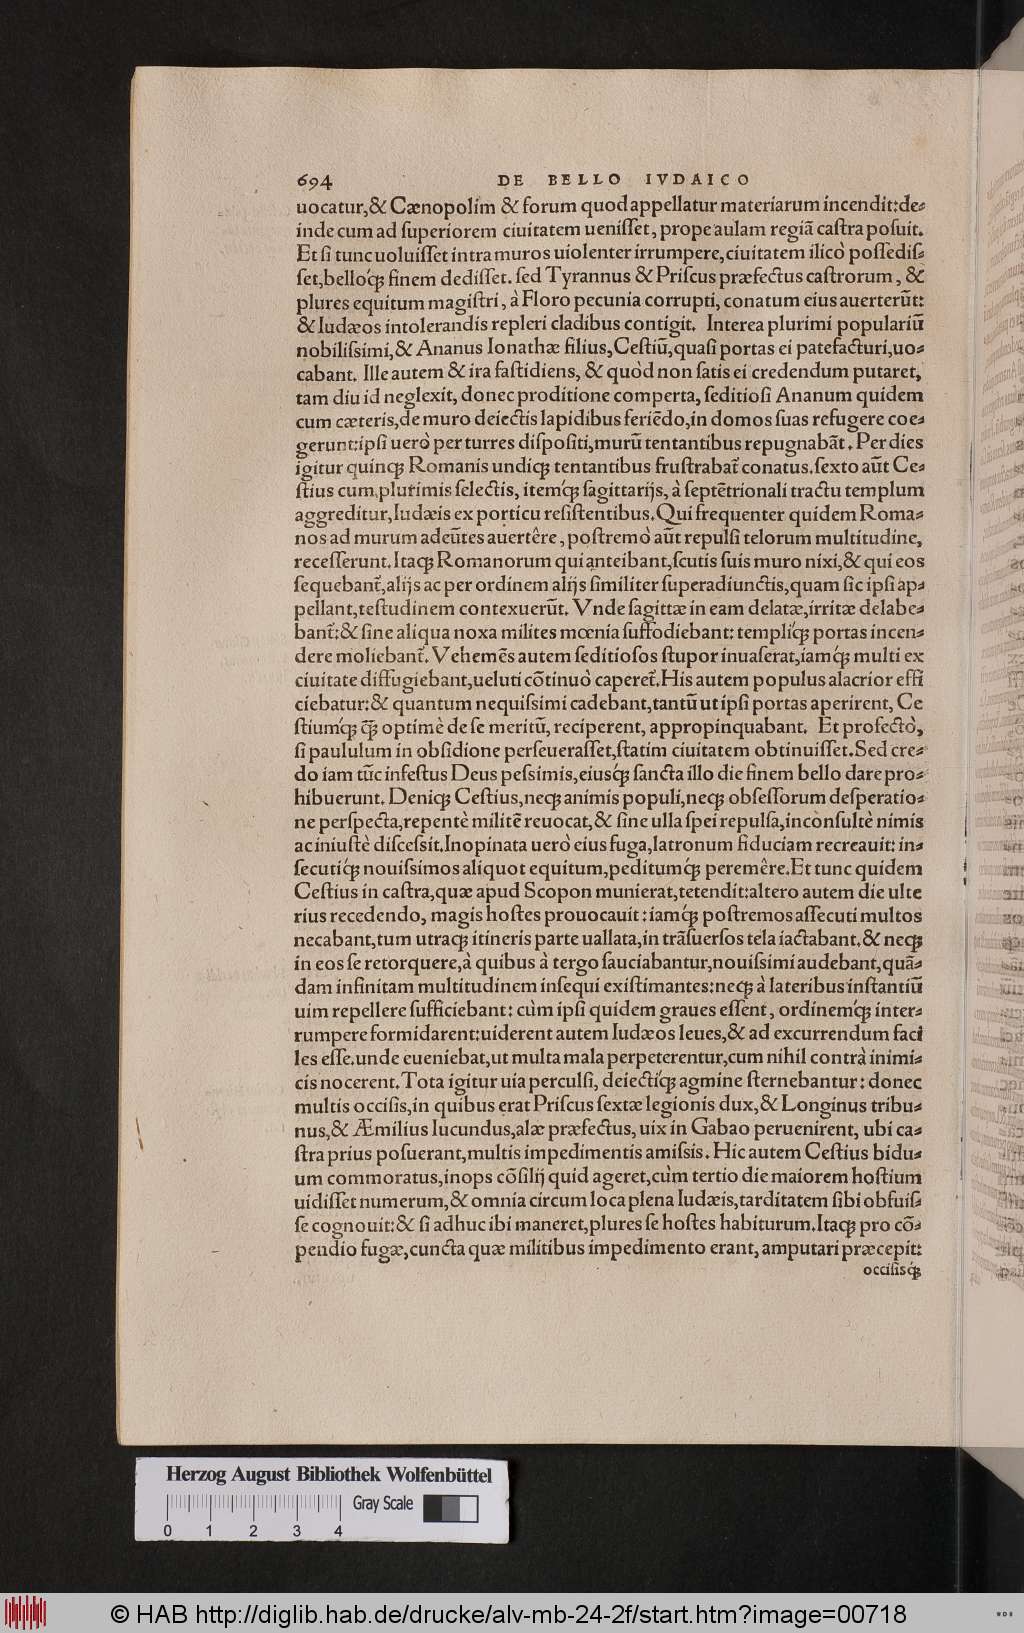 694 DE BELLO IVDAICO
uocatur,& Cænopolim & forum quod appellatur materiarum incendit:de-
inde cum ad ſuperiorem ciuitatem ueniſſet, prope aulam regiā caſtra poſuit.
Et ſi tunc uoluiſſet intra muros uiolenter irrumpere, ciuitatem ilicò poſſediſ-
ſet,belloq́ꝫ finem dediſſet. ſed Tyrannus & Priſcus præfectus caſtrorum, &
plures equitum magiſtri, à Floro pecunia corrupti, conatum eius auerterūt:
& Iudæos intolerandis repleri cladibus contigit. Interea plurimi populariū
nobiliſsimi,& Ananus Ionathæ filius,Ceſtiū,quaſi portas ei patefacturi,uo-
cabant. Ille autem & ira faſtidiens, & quòd non ſatis ei credendum putaret,
tam diu id neglexit, donec proditione comperta, ſeditioſi Ananum quidem
cum cæteris,de muro deiectis lapidibus feriēdo,in domos ſuas refugere coe-
gerunt:ipſi uerò per turres diſpoſiti,murū tentantibus repugnabāt. Per dies
igitur quinqꝫ Romanis undiqꝫ tentantibus fruſtrabat̃ conatus.ſexto aūt Ce-
ſtius cum plurimis ſelectis, itemq́ꝫ ſagittarijs, à ſeptētrionali tractu templum
aggreditur,Iudæis ex porticu reſiſtentibus.Qui frequenter quidem Roma-
nos ad murum adeūtes auertêre, poſtremò aūt repulſi telorum multitudine,
receſſerunt.Itaqꝫ Romanorum qui anteibant,ſcutis ſuis muro nixi,& qui eos
ſequebant̃,alijs ac per ordinem alijs ſimiliter ſuperadiunctis,quam ſic ipſi ap-
pellant,teſtudinem contexuerūt. Vnde ſagittæ in eam delatæ,irritæ delabe-
bant̃:& ſine aliqua noxa milites mœnia ſuffodiebant: templiq́ꝫ portas incen-
dere moliebant̃. Vehemēs autem ſeditioſos ſtupor inuaſerat,iamq́ꝫ multi ex
ciuitate diffugiebant,ueluti cōtinuò caperet̃.His autem populus alacrior effi
ciebatur:& quantum nequiſsimi cadebant,tantū ut ipſi portas aperirent, Ce
ſtiumq́ꝫ q̃ꝫ optimè de ſe meritū, reciperent, appropinquabant. Et profectò,
ſi paululum in obſidione perſeueraſſet,ſtatim ciuitatem obtinuiſſet.Sed cre-
do iam tūc infeſtus Deus peſsimis,eiusq́ꝫ ſancta illo die finem bello dare pro-
hibuerunt. Deniqꝫ Ceſtius,neqꝫ animis populi,neqꝫ obſeſſorum deſperatio-
ne perſpecta,repentè militē reuocat,& ſine ulla ſpei repulſa,inconſultè nimis
ac iniuſtè diſceſsit.Inopinata uerò eius fuga,latronum fiduciam recreauit: in-
ſecutiq́ꝫ nouiſsimos aliquot equitum,peditumq́ꝫ peremêre.Et tunc quidem
Ceſtius in caſtra,quæ apud Scopon munierat,tetendit:altero autem die ulte
rius recedendo, magis hoſtes prouocauit: iamq́ꝫ poſtremos aſſecuti multos
necabant,tum utraqꝫ itineris parte uallata,in trāſuerſos tela iactabant.& neqꝫ
in eos ſe retorquere,à quibus à tergo ſauciabantur,nouiſsimi audebant,quā-
dam infinitam multitudinem inſequi exiſtimantes:neqꝫ à lateribus inſtantiū
uim repellere ſufficiebant: cùm ipſi quidem graues eſſent, ordinemq́ꝫ inter-
rumpere formidarent:uiderent autem Iudæos leues,& ad excurrendum faci
les eſſe.unde eueniebat,ut multa mala perpeterentur,cum nihil contrà inimi-
cis nocerent.Tota igitur uia perculſi, deiectiq́ꝫ agmine ſternebantur: donec
multis occiſis,in quibus erat Priſcus ſextæ legionis dux,& Longinus tribu-
nus,& Æmilius Iucundus,alæ præfectus, uix in Gabao peruenirent, ubi ca-
ſtra prius poſuerant,multis impedimentis amiſsis. Hic autem Ceſtius bidu-
um commoratus,inops cōſilij quid ageret,cùm tertio die maiorem hoſtium
uidiſſet numerum,& omnia circum loca plena Iudæis,tarditatem ſibi obfuiſ-
ſe cognouit:& ſi adhuc ibi maneret,plures ſe hoſtes habiturum.Itaqꝫ pro cō-
pendio fugæ,cuncta quæ militibus impedimento erant, amputari præcepit:
occiſisq́ꝫ
Herzog August Bibliothek Wolfenbüttel
Gray Scale
0 1 2 3 4
© HAB http://diglib.hab.de/drucke/alv-mb-24-2f/start.htm?image=00718